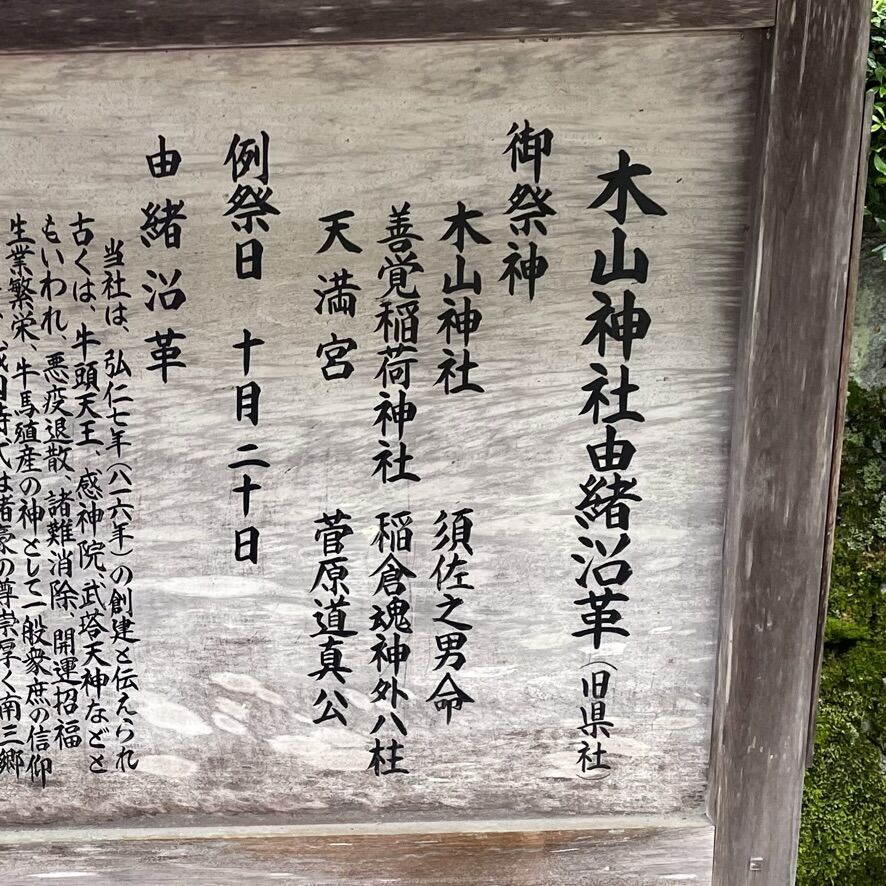 木山神社由緒沿革（旧県社）
御祭神
木山神社 須佐之男命
善覚稲荷神社 稲倉魂神外八柱
天満宮 菅原道真公
例祭日 十月二十日
由緒沿革
当社は、弘仁七年（八一六年）の創建と伝えられ
古くは、牛頭天王、感神院、武塔天神などと
もいわれ、悪疫退散、諸難消除、開運招福
生業繁栄、牛馬殖産の神として一般衆庶の信仰
戦国時代は諸豪の尊崇厚く南三郷